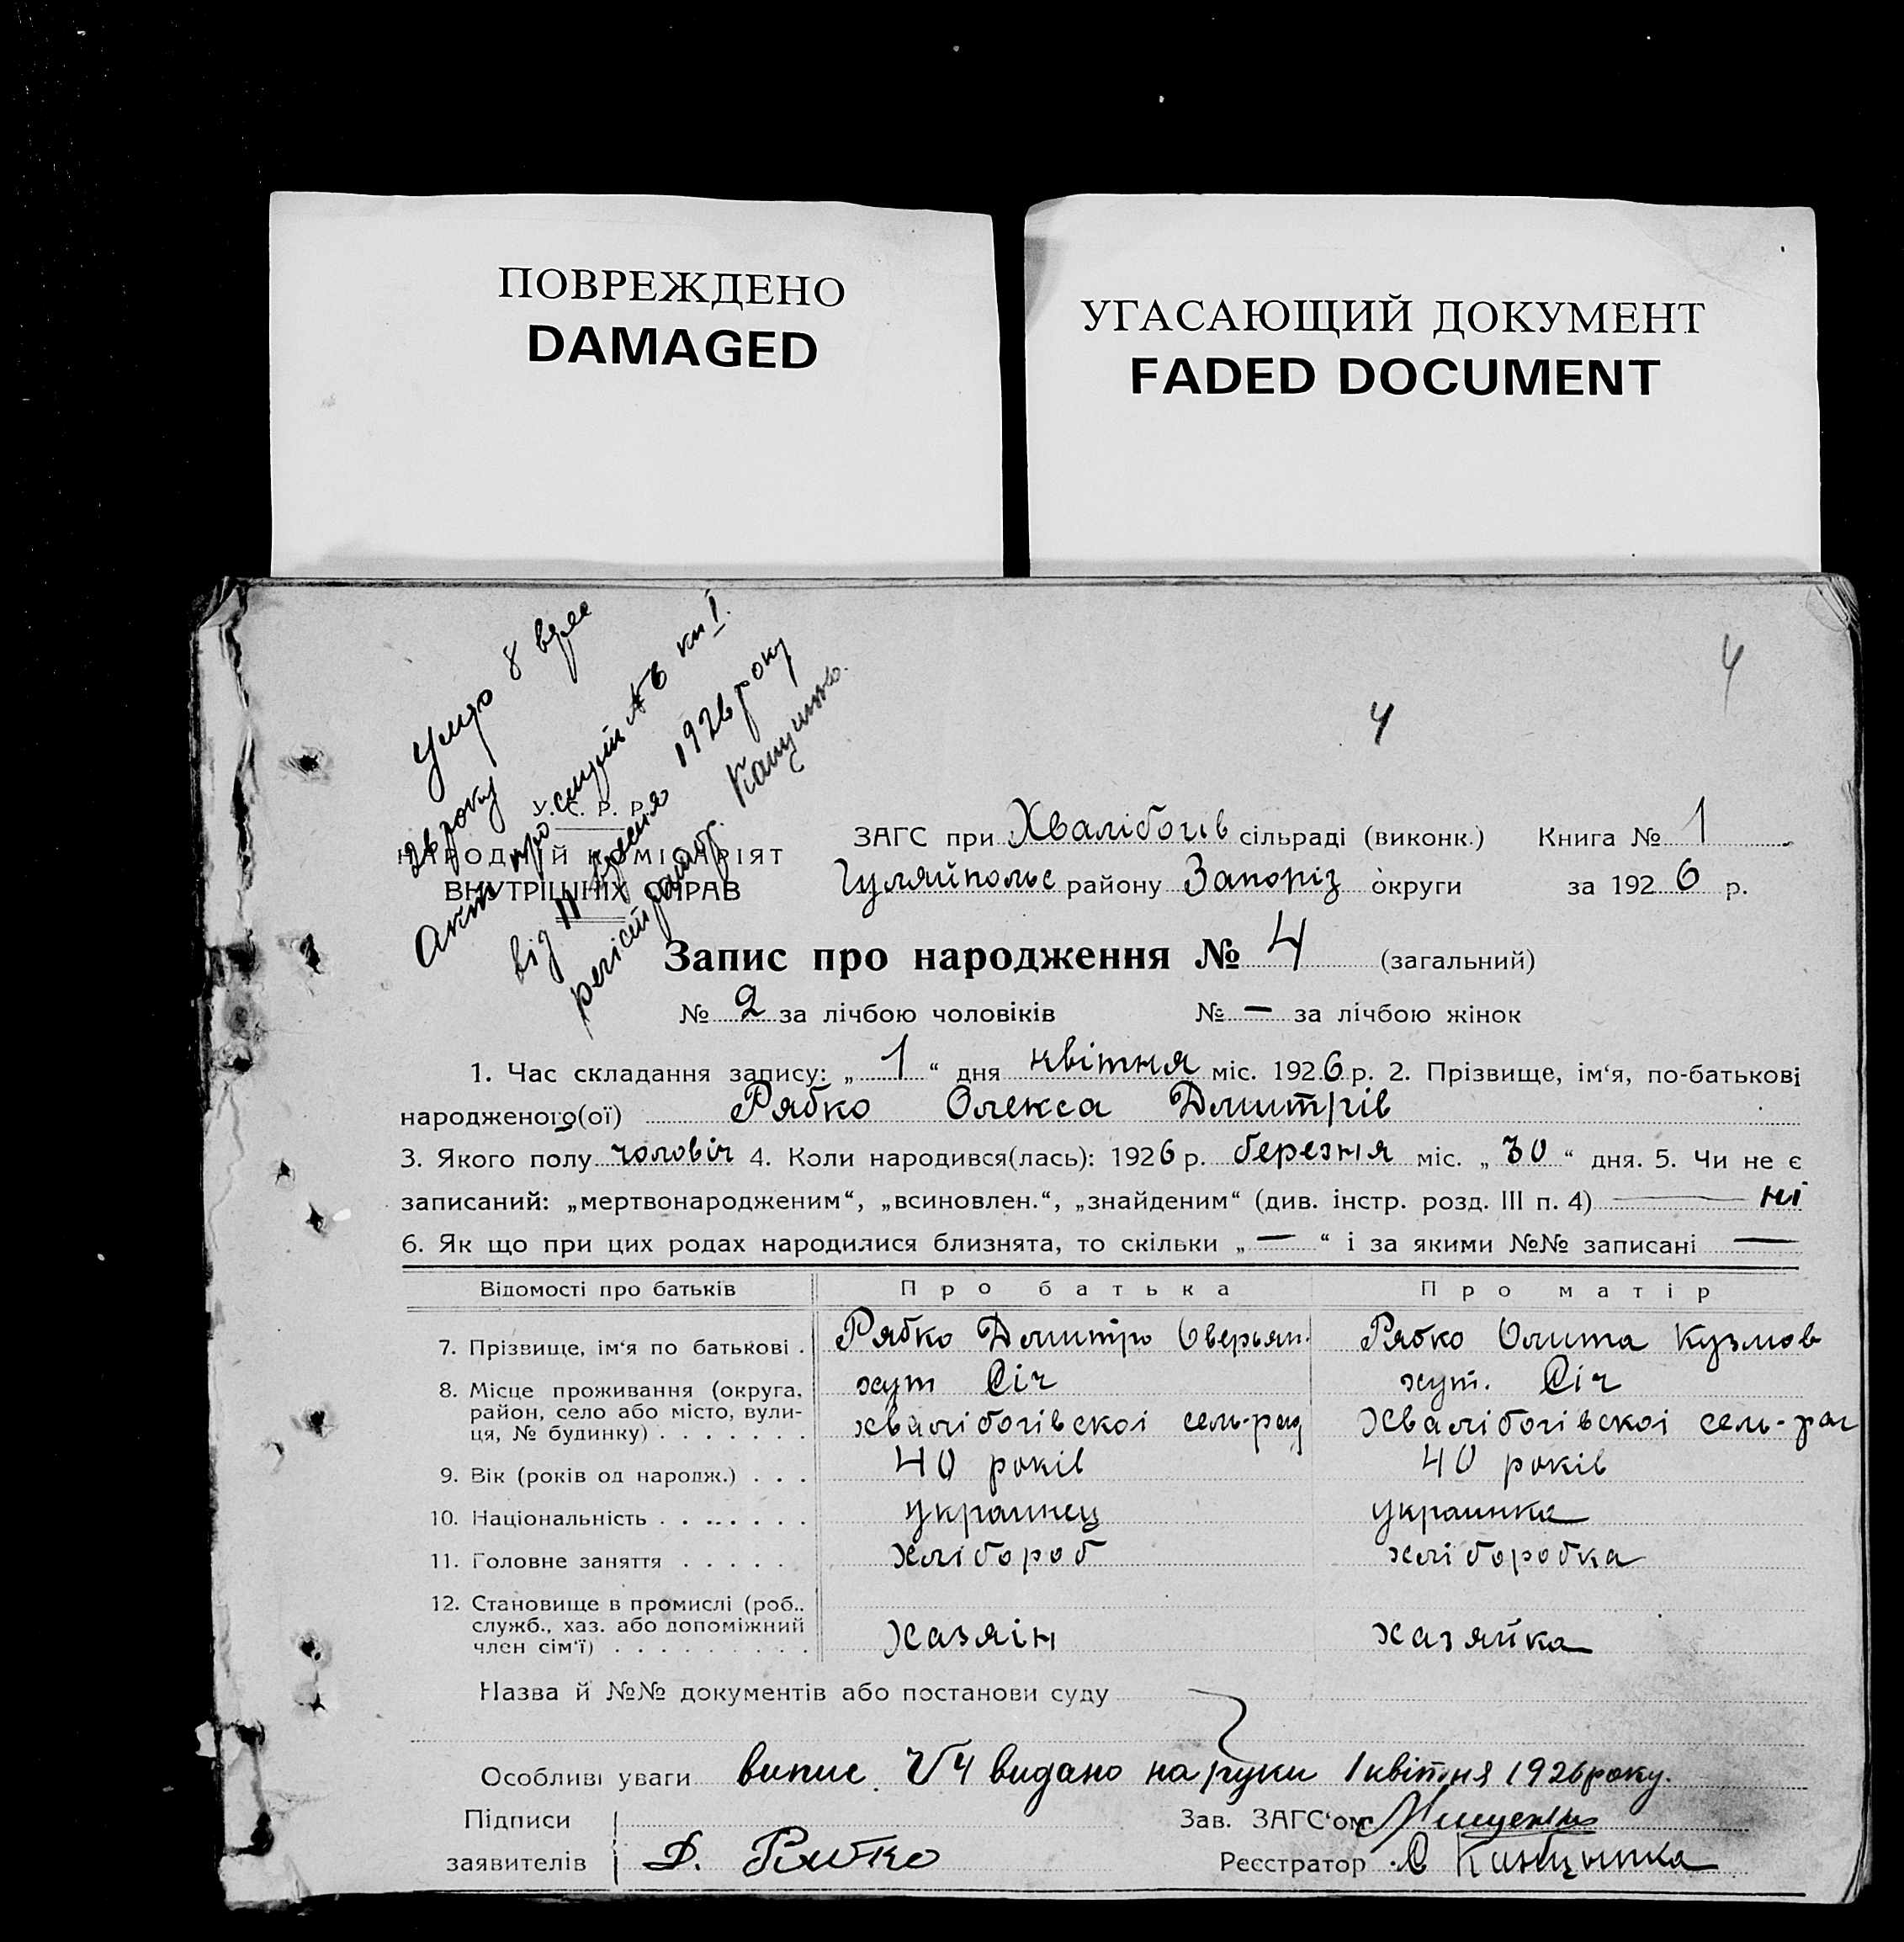 ПОВРЕЖДЕНО
DAMAGED
УГАСАЮЩИЙ ДОКУМЕНТ
FADED DOCUMENT
4
4
Умер 8 вере
26 року
Акт про смерть № 6 кн I.
від 11 вресня 1926 року
регістратор.
У. С. Р. Р.
НАРОДНІЙ КОМІСАРІЯТ
ВНУТРІШНІХ СПРАВ
ЗАГС при Хвалібогів сільраді (виконк.) Книга № 1
Гуляйпольс району Запоріз округи за 1926 р.
Запис про народження № 4 (загальний)
№ 2 за лічбою чоловіків № — за лічбою жінок
1. Час складання запису: „ 1 “ дня квітня міс. 1926 р. 2. Прізвище, ім‘я, по-батькові
народженого(ої) Рябко Олекса Дмитрів
3. Якого полу чоловіч 4. Коли народився(лась): 1926 р. березня міс. „ 30 “ дня. 5. Чи не є
записаний: „мертвонародженим“, „всиновлен.“, „знайденим“ (див. інстр. розд. III п. 4) — ні
6. Як що при цих родах народилися близнята, то скільки „ — “ і за якими №№ записані —
Відомості про батьків Про батька Про матір
7. Прізвище, ім‘я по батькові . Рябко Дмитро Оверьян. Рябко Олита Кузмов
8. Місце проживання (округа, хут Січ хут. Січ
район, село або місто, вули- хвалібогівскоі сель-рад Хвалібогівскоі сель-рас
ця, № будинку) . . . . . . .
9. Вік (років од народж.) . . . 40 років 40 років
10. Національність . . . . . . . украинец украинка
11. Головне заняття . . . . . хлібороб хліборобка
12. Становище в промислі (роб.,
служб., хаз. або допоміжний Хазяін хазяйка
член сім‘ї) . . . . . . . . .
Назва й №№ документів або постанови суду
Особливі уваги випис. № 4 видано на руки 1 квітня 1926 року.
Підписи Зав. ЗАГС‘ом
заявителів Д. Рябко Реєстратор